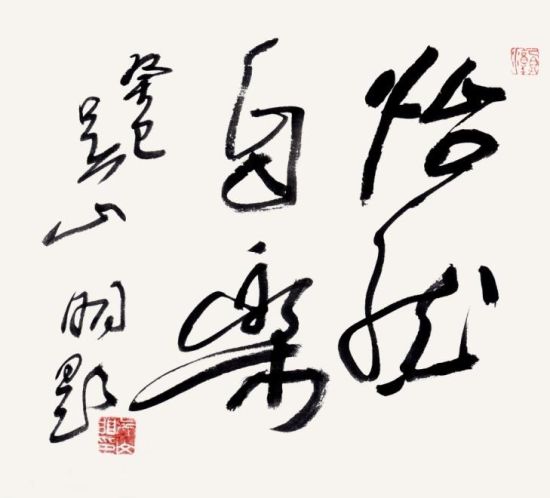 怡然
自樂
癸巳吴山明題